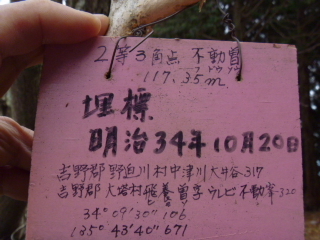 2等3角点 不動曽
フドウソ
117.35m
埋標
明治34年10月20日
吉野郡野迫川村中津川大井谷317
吉野郡大塔村飛養曽字ウレビ不動峯320
34°09'30"106
135°43'40"671